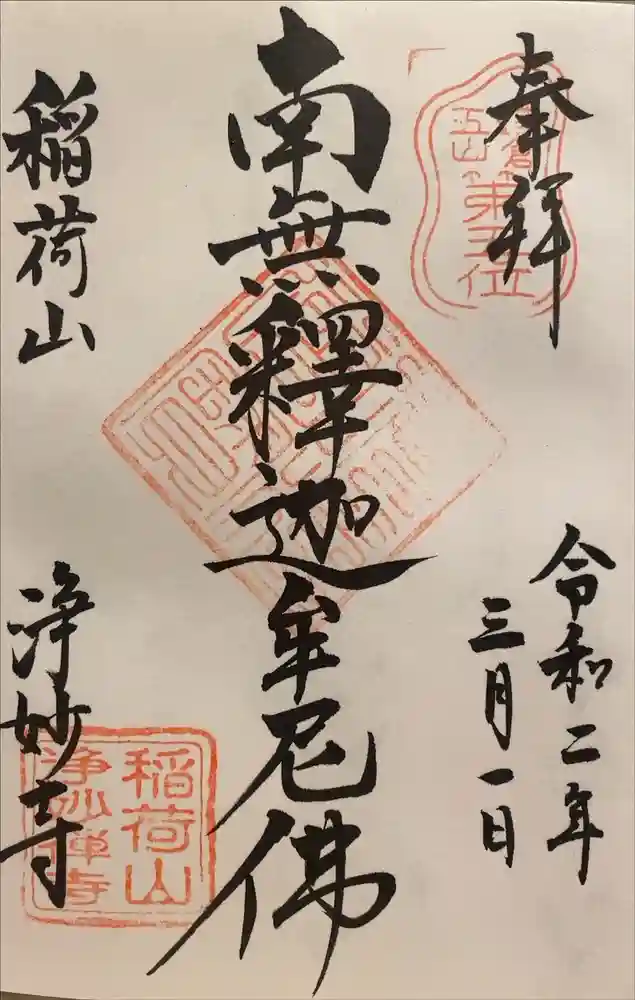 奉拝
鎌倉
五山
第五位
令和二年
三月一日
南無釋迦牟尼佛
稲荷山
浄妙寺
稲荷山
浄妙禅寺